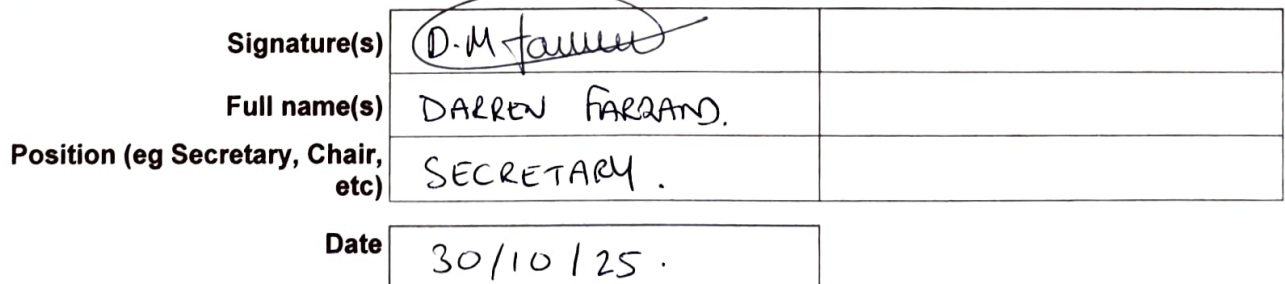 Signature(s) D.M
Full name(s) DARREN FARRAND.
Position (eg Secretary, Chair,
etc) SECRETARY.
Date 30/10/25.